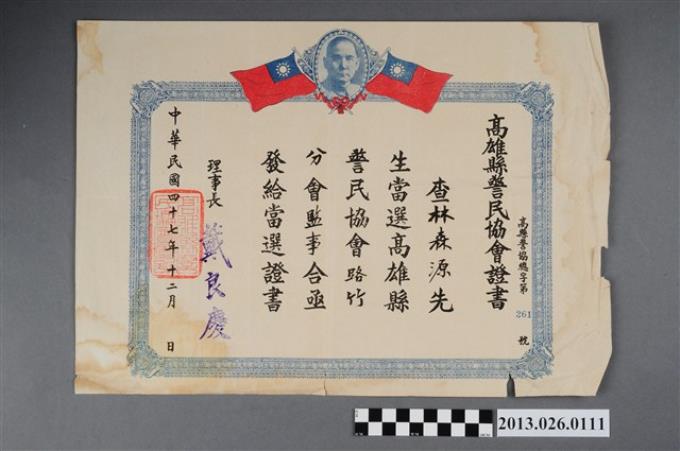 高雄縣警民協會證書
高縣警協總字第
261
號
查林森源先
生當選高雄縣
警民協會路竹
分會監事合亟
發給當選證書
理事長
戴良慶
中華民國四十七年十二月 日
2013.026.0111